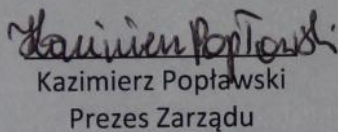 Kazimierz Popławski
Kazimierz Popławski
Prezes Zarządu